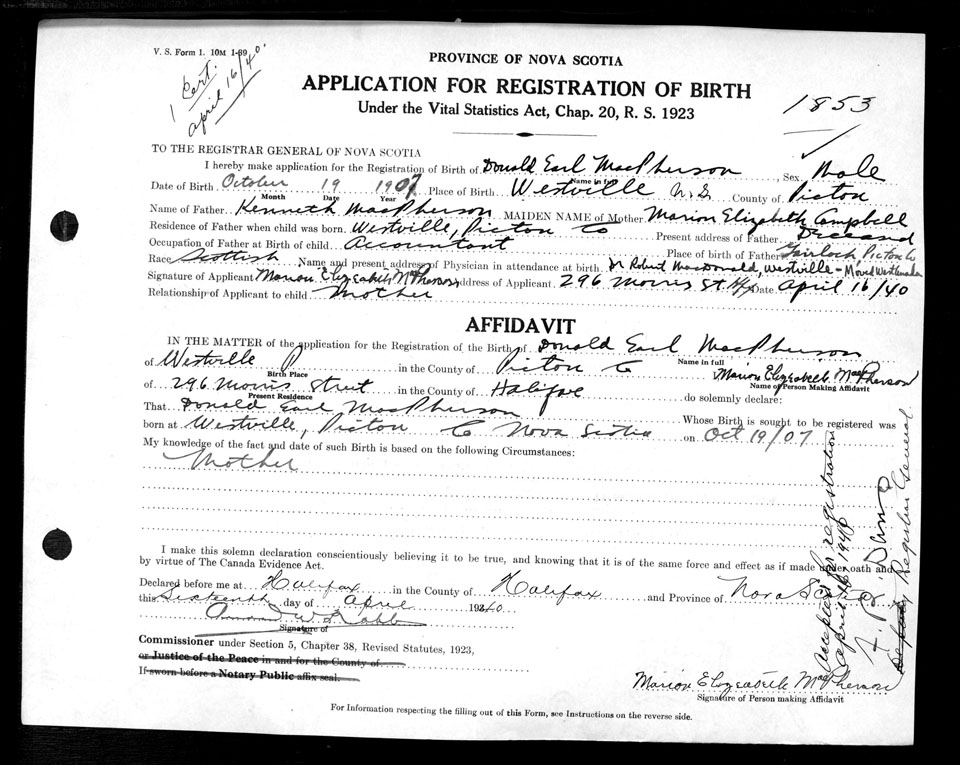 V. S. Form 1. 10M 1-39
1 Cert.
april 16/40'
PROVINCE OF NOVA SCOTIA
APPLICATION FOR REGISTRATION OF BIRTH
Under the Vital Statistics Act, Chap. 20, R. S. 1923
1853
TO THE REGISTRAR GENERAL OF NOVA SCOTIA
I hereby make application for the Registration of Birth of Donald Earl MacPherson Sex Male
Name in full
Date of Birth October 19 1907 Place of Birth Westville N.S County of Pictou
Month Date Year
Name of Father Kenneth MacPherson MAIDEN NAME of Mother Marion Elizabeth Campbell
Residence of Father when child was born. Westville, Pictou Co Present address of Father Deceased
Occupation of Father at Birth of child Accountant Place of birth of Father Gairloch Pictou Co
Race Scottish Name and present address of Physician in attendance at birth Dr Robert MacDonald, Westville - Moved
Signature of Applicant Marion Elizabeth MacPherson Address of Applicant 296 Morris St Hfx Date April 16/40
Relationship of Applicant to child Mother
AFFIDAVIT
IN THE MATTER of the application for the Registration of the Birth of Donald Earl MacPherson
Name in full
of Westville in the County of Pictou Co Marion Elizabeth MacPherson
Birth Place Name of Person Making Affidavit
of 296 Morris Street in the County of Halifax do solemnly declare:
Present Residence
That Donald Earl MacPherson Whose Birth is sought to be registered was
born at Westville, Pictou Co Nova Scotia on Oct 19/07
My knowledge of the fact and date of such Birth is based on the following Circumstances:
Mother
I make this solemn declaration conscientiously believing it to be true, and knowing that it is of the same force and effect as if made under oath and
by virtue of The Canada Evidence Act.
Declared before me at Halifax in the County of Halifax and Province of Nova Scotia
this Sixteenth day of April 1940
Signature of
Commissioner under Section 5, Chapter 38, Revised Statutes, 1923,
or Justice of the Peace in and for the County of
If sworn before a Notary Public affix seal.
Marion Elizabeth MacPherson
Signature of Person making Affidavit
For Information respecting the filling out of this Form, see Instructions on the reverse side.
Accepted for registration
april 16 1940
Deputy Registrar General